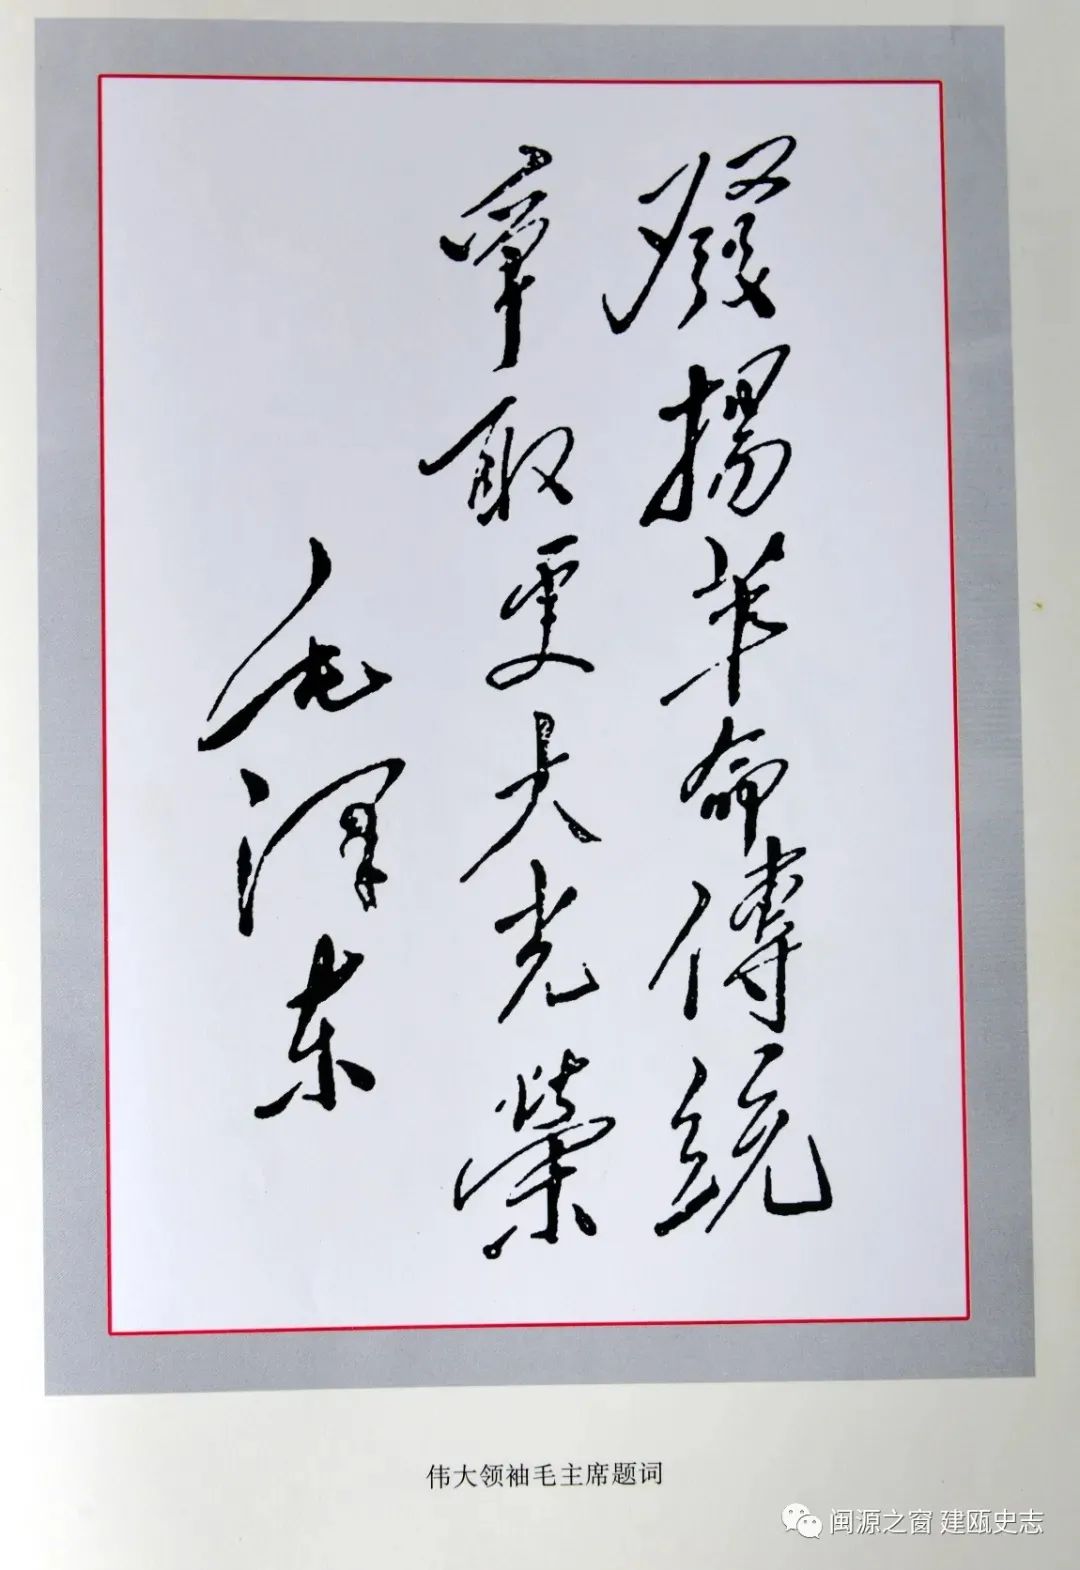 發揚革命傳統
爭取更大光榮
毛泽东
伟大领袖毛主席题词
闽源之窗 建瓯史志